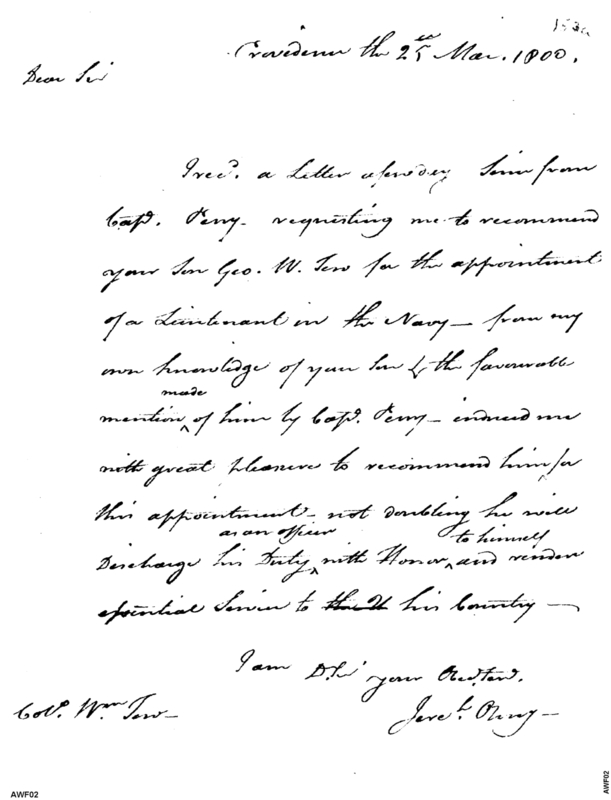 Providence the 25th Mar. 1800.
Dear Sir
I recd. a Letter a few days Since from
Capt. Perry - requesting me to recommend
your Son Geo. W. Tew for the appointment
of a Lieutenant in the Navy — from my
own knowledge of your Son & the favourable
made
mention ^ of him by Capt. Perry - induced me
with great pleasure to recommend him for
this appointment - not doubting he will
as an officer to himself
Discharge his Duty ^ with Honor ^ and render
essential Service to his Country —
I am D. Sir your Obed. Servt.
Colo. Wm Tew - Jereh. Olney -
AWF02
AWF02